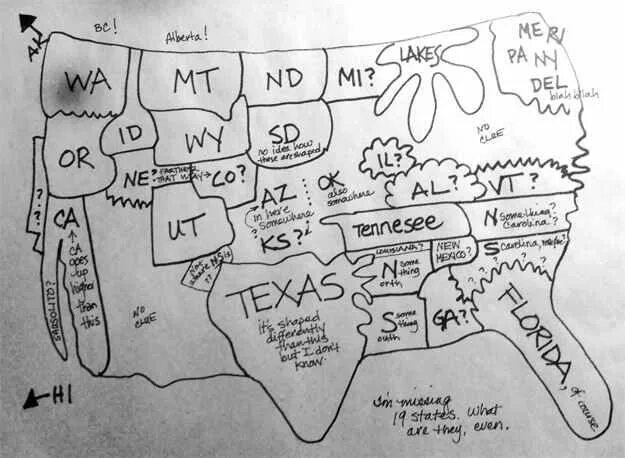 BC!
Alberta!
AK
WA
MT
ND
MI?
LAKES
ME RI
PA NY
DEL
blah blah
OR
ID
WY
SD
no idea how
these are shaped
NO
CLUE
NE?
FARTHER
THAT WAY
CO?
IL?
AL?
VT?
AZ
in here
somewhere
OK
also
somewhere
? KS?
UT
Tennesee
N Something
Carolina?
S Carolina, maybe?
LOUISIANA?
NEW
MEXICO?
N some
thing
orth
S some
thing
outh
GA?
? ? ? ? ?
FLORIDA, of course
CA
CA
goes
up
higher
than
this
? ? ?
SAUSOLITO?
Not
sure
??
TEXAS
it's shaped
differently
than this
but I don't
know.
NO
CLUE
HI
I'm missing
19 states. What
are they, even.